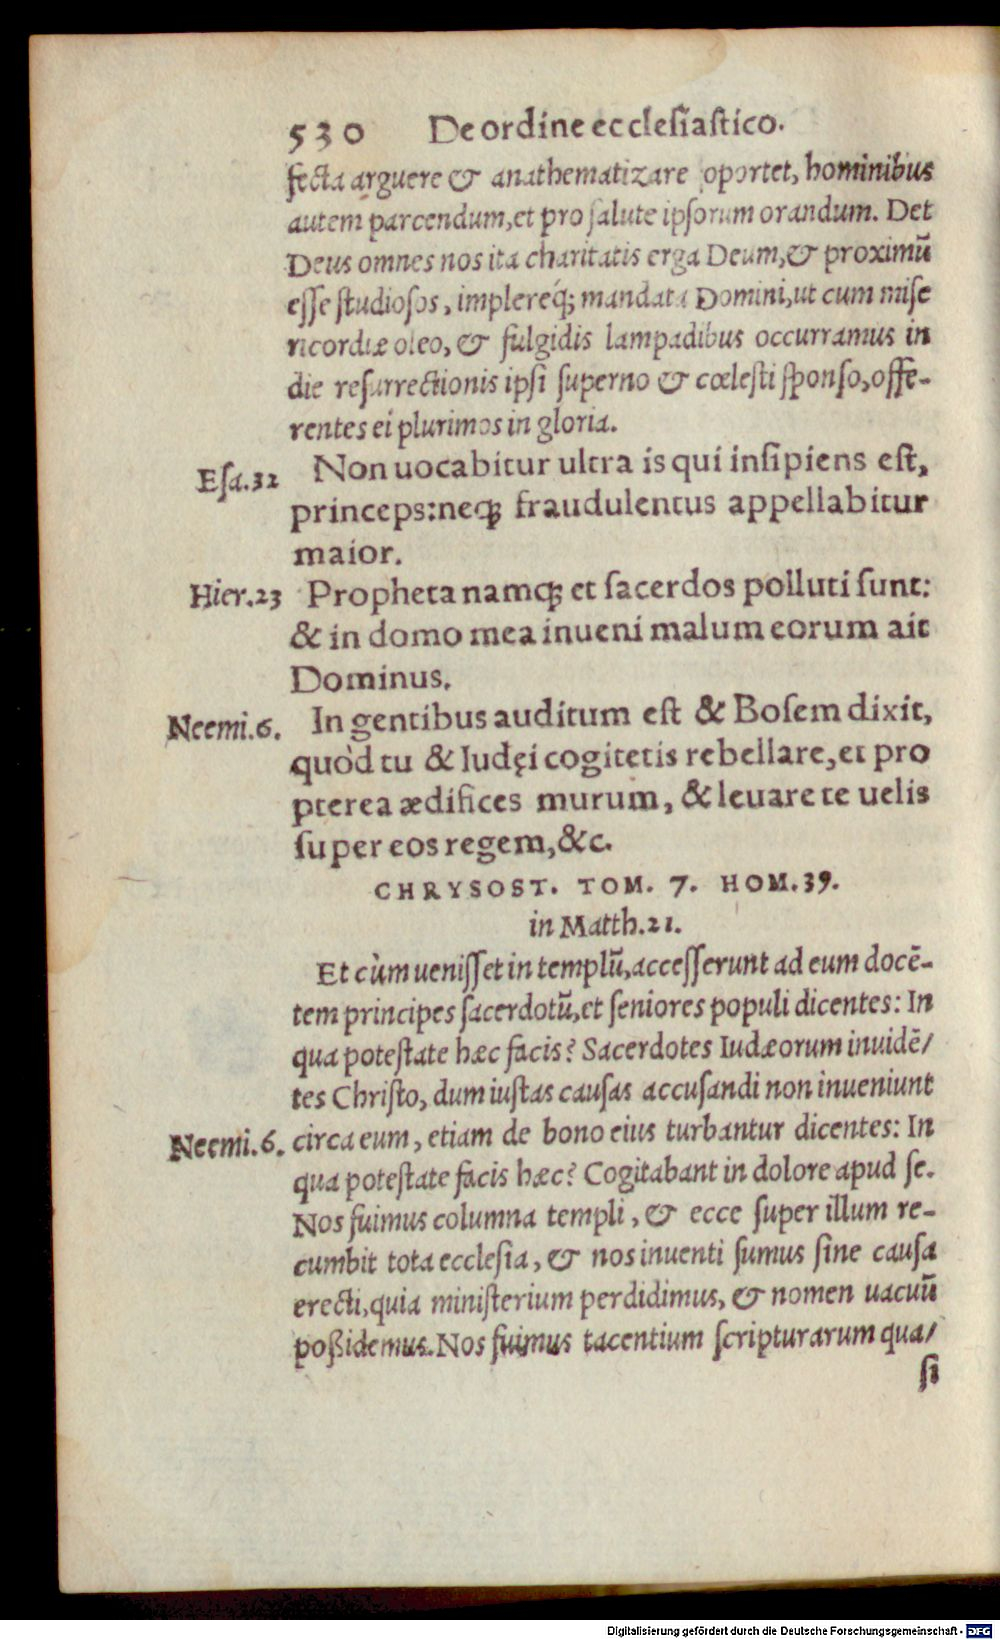 530 De ordine ecclesiastico.
fecta arguere & anathematizare oportet, hominibus
autem parcendum, et pro salute ipsorum orandum. Det
Deus omnes nos ita charitatis erga Deum, & proximū
esse studiosos, implereq́; mandata Domini, ut cum mise
ricordiæ oleo, & fulgidis lampadibus occurramus in
die resurrectionis ipsi superno & cœlesti sponso, offe-
rentes ei plurimos in gloria.
Esa.32 Non uocabitur ultra is qui insipiens est,
princeps: neq; fraudulentus appellabitur
maior.
Hier.23 Propheta namq; et sacerdos polluti sunt:
& in domo mea inueni malum eorum ait
Dominus.
Neemi.6. In gentibus auditum est & Bosem dixit,
quòd tu & Iudęi cogitetis rebellare, et pro
pterea ædifices murum, & leuare te uelis
super eos regem, &c.
CHRYSOST. TOM. 7. HOM. 39.
in Matth.21.
Et cùm uenisset in templū, accesserunt ad eum docē-
tem principes sacerdotū, et seniores populi dicentes: In
qua potestate hæc facis? Sacerdotes Iudæorum inuidē/
tes Christo, dum iustas causas accusandi non inueniunt
Neemi.6. circa eum, etiam de bono eius turbantur dicentes: In
qua potestate facis hæc? Cogitabant in dolore apud se.
Nos fuimus columna templi, & ecce super illum re-
cumbit tota ecclesia, & nos inuenti sumus sine causa
erecti, quia ministerium perdidimus, & nomen uacuū
poßidemus. Nos fuimus tacentium scripturarum qua/
si
Digitalisierung gefördert durch die Deutsche Forschungsgemeinschaft - DFG